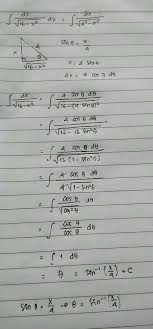 ∫ dx/√(16-x²) dx = ∫ dx/√(4²-x²)
x 4 θ √(16-x²)
sin θ = x/4
x = 4 sin θ
dx = 4 cos θ dθ
∫ dx/√(16-x²) = ∫ 4 cos θ dθ/√(16-(4 sin θ)²)
= ∫ 4 cos θ dθ/√(16-16 sin²θ)
= ∫ 4 cos θ dθ/√(16(1-sin²θ))
= ∫ 4 cos θ dθ/4√(1-sin²θ)
= ∫ cos θ dθ/√(cos²θ)
= ∫ cos θ dθ/cos θ
= ∫ 1 dθ
= θ = sin⁻¹(x/4) + C
sin θ = x/4 → θ = sin⁻¹(x/4)